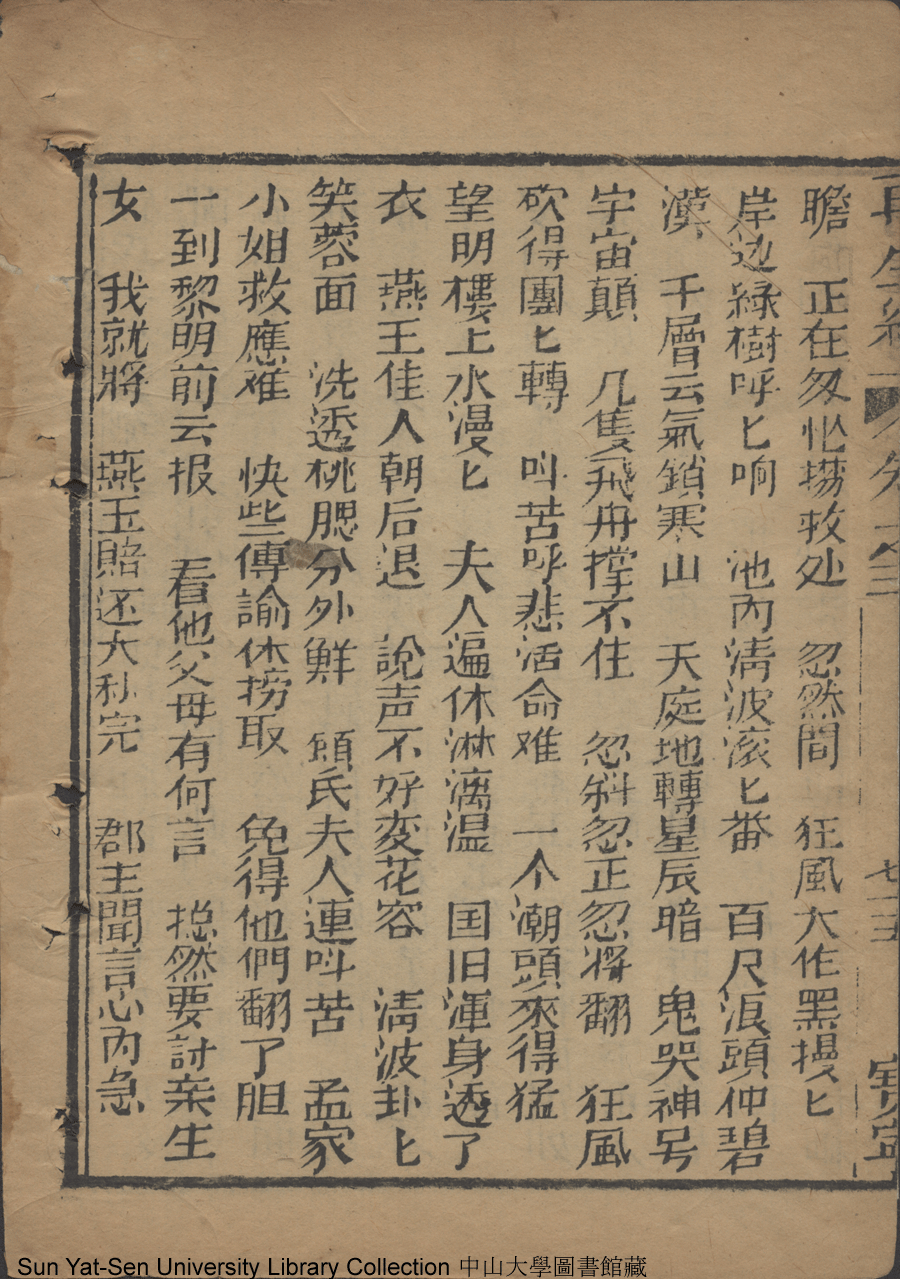 瞻　正在匆忙撈救处　忽然間　狂風大作黑提匕
岸边緑樹呼匕响　池內清波滚匕番　百尺浪頭仲碧
漢　千層云氣鎖寒山　天庭地轉星辰暗　鬼哭神号
宇宙顛　几隻飛舟撑不住　忽斜忽正忽將翻　狂風
砍得團匕轉　叫苦呼悲活命难　一个潮頭來得猛
望明樓上水漫匕　夫人遍体淋漓温　国旧渾身透了
衣　燕王佳人朝后退　說声不好変花容　清波卦匕
笑蓉面　洗透桃腮分外鮮　頋氏夫人連叫苦　孟家
小姐救應难　快些傳諭休撈取　免得他們翻了胆
一到黎明前云报　看他父母有何言　搃然要討亲生
女　我就將　燕玉賠还大私完　郡主聞言心內急
Sun Yat-Sen University Library Collection 中山大學圖書館藏